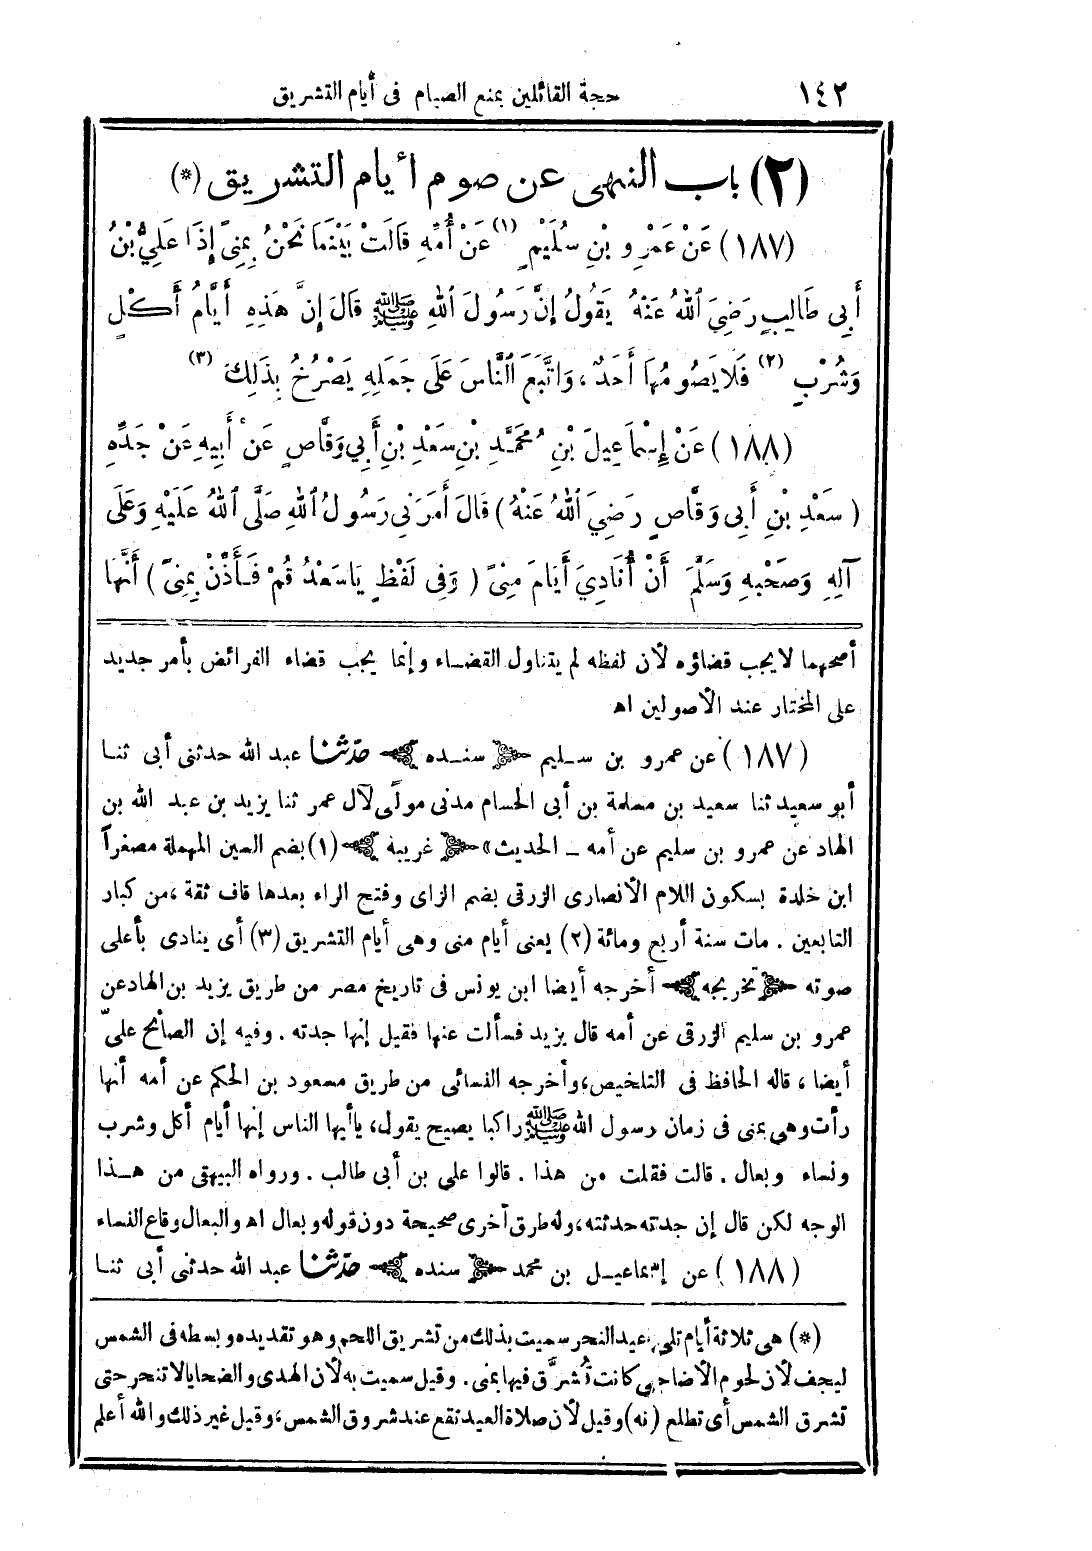 ١٤٢ حجة القائلين بمنع الصيام فى أيام التشريق
(٢) باب النهى عن صوم أيام التشريق (*)
(١٨٧) عَنْ عَمْرِو بْنِ سُلَيْمٍ (١) عَنْ أُمِّهِ قَالَتْ بَيْنَمَا نَحْنُ بِمِنىً إِذَا عَلِيُّ بْنُ
أَبِى طَالِبٍ رَضِيَ اللهُ عَنْهُ يَقُولُ إِنَّ رَسُولَ اللهِ ﷺ قَالَ إِنَّ هَذِهِ أَيَّامُ أَكْلٍ
وَشُرْبٍ (٢) فَلَا يَصُومُهَا أَحَدٌ، وَاتَّبَعَ النَّاسَ عَلَى جَمَلِهِ يَصْرُخُ بِذَلِكَ (٣)
(١٨٨) عَنْ إِسْمَاعِيلَ بْنِ مُحَمَّدِ بْنِ سَعْدِ بْنِ أَبِي وَقَّاصٍ عَنْ أَبِيهِ عَنْ جَدِّهِ
(سَعْدِ بْنِ أَبِى وَقَّاصٍ رَضِيَ اللهُ عَنْهُ) قَالَ أَمَرَنِي رَسُولُ اللهِ صَلَّى اللهُ عَلَيْهِ وَعَلَى
آلِهِ وَصَحْبِهِ وَسَلَّمَ أَنْ أُنَادِيَ أَيَامَ مِنىً (وَفِى لَفْظٍ يَاسَعْدُ قُمْ فَأَذِّنْ بِمِنىً) أَنَّهَا
أصحهما لايجب قضاؤه لأن لفظه لم يتناول القضاء وإنما يجب قضاء الفرائض بأمر جديد
على المختار عند الأصولين اه
(١٨٧) عن عمرو بن سليم ﴿ سنده ﴾ حدّثنا عبد الله حدثنى أبى ثنا
أبو سعيد ثنا سعيد بن مسلمة بن أبى الحسام مدنى مولًى لآل عمر ثنا يزيد بن عبد الله بن
الهاد عن عمرو بن سليم عن أمه ـ الحديث» ﴿ غريبه ﴾ (١) بضم السين المهملة مصغراً
ابن خلدة بسكون اللام الأنصارى الزرقى بضم الزاى وفتح الراء بعدها قاف ثقة، من كبار
التابعين . مات سنة أربع ومائة (٢) يعنى أيام منى وهى أيام التشريق (٣) أى ينادى بأعلى
صوته ﴿ تخريجه ﴾ أخرجه أيضا ابن يونس فى تاريخ مصر من طريق يزيد بن الهاد عن
عمرو بن سليم الزرقى عن أمه قال يزيد فسألت عنها فقيل إنها جدته . وفيه إن الصائح علىّ
أيضا، قاله الحافظ فى التلخيص، وأخرجه النسائى من طريق مسعود بن الحكم عن أمه أنها
رأت وهى بمنى فى زمان رسول الله ﷺ راكبا يصيح يقول، ياأيها الناس إنها أيام أكل وشرب
ونساء وبعال . قالت فقلت من هذا . قالوا على بن أبى طالب . ورواه البيهقى من هذا
الوجه لكن قال إن جدته حدثته، وله طرق أخرى صحيحة دون قوله وبعال اه والبعال وقاع النساء
(١٨٨) عن إسماعيل بن محمد ﴿ سنده ﴾ حدّثنا عبد الله حدثنى أبى ثنا
(*) هى ثلاثة أيام تلى عيد النحر سميت بذلك من تشريق اللحم وهو تقديده وبسطه فى الشمس
ليجف لأن لحوم الأضاحى كانت تُشرَّق فيها بمنى . وقيل سميت به لأن الهدى والضحايا لا تنحر حتى
تشرق الشمس أى تطلع (نه) وقيل لأن صلاة العيد تقع عند شروق الشمس، وقيل غير ذلك والله أعلم